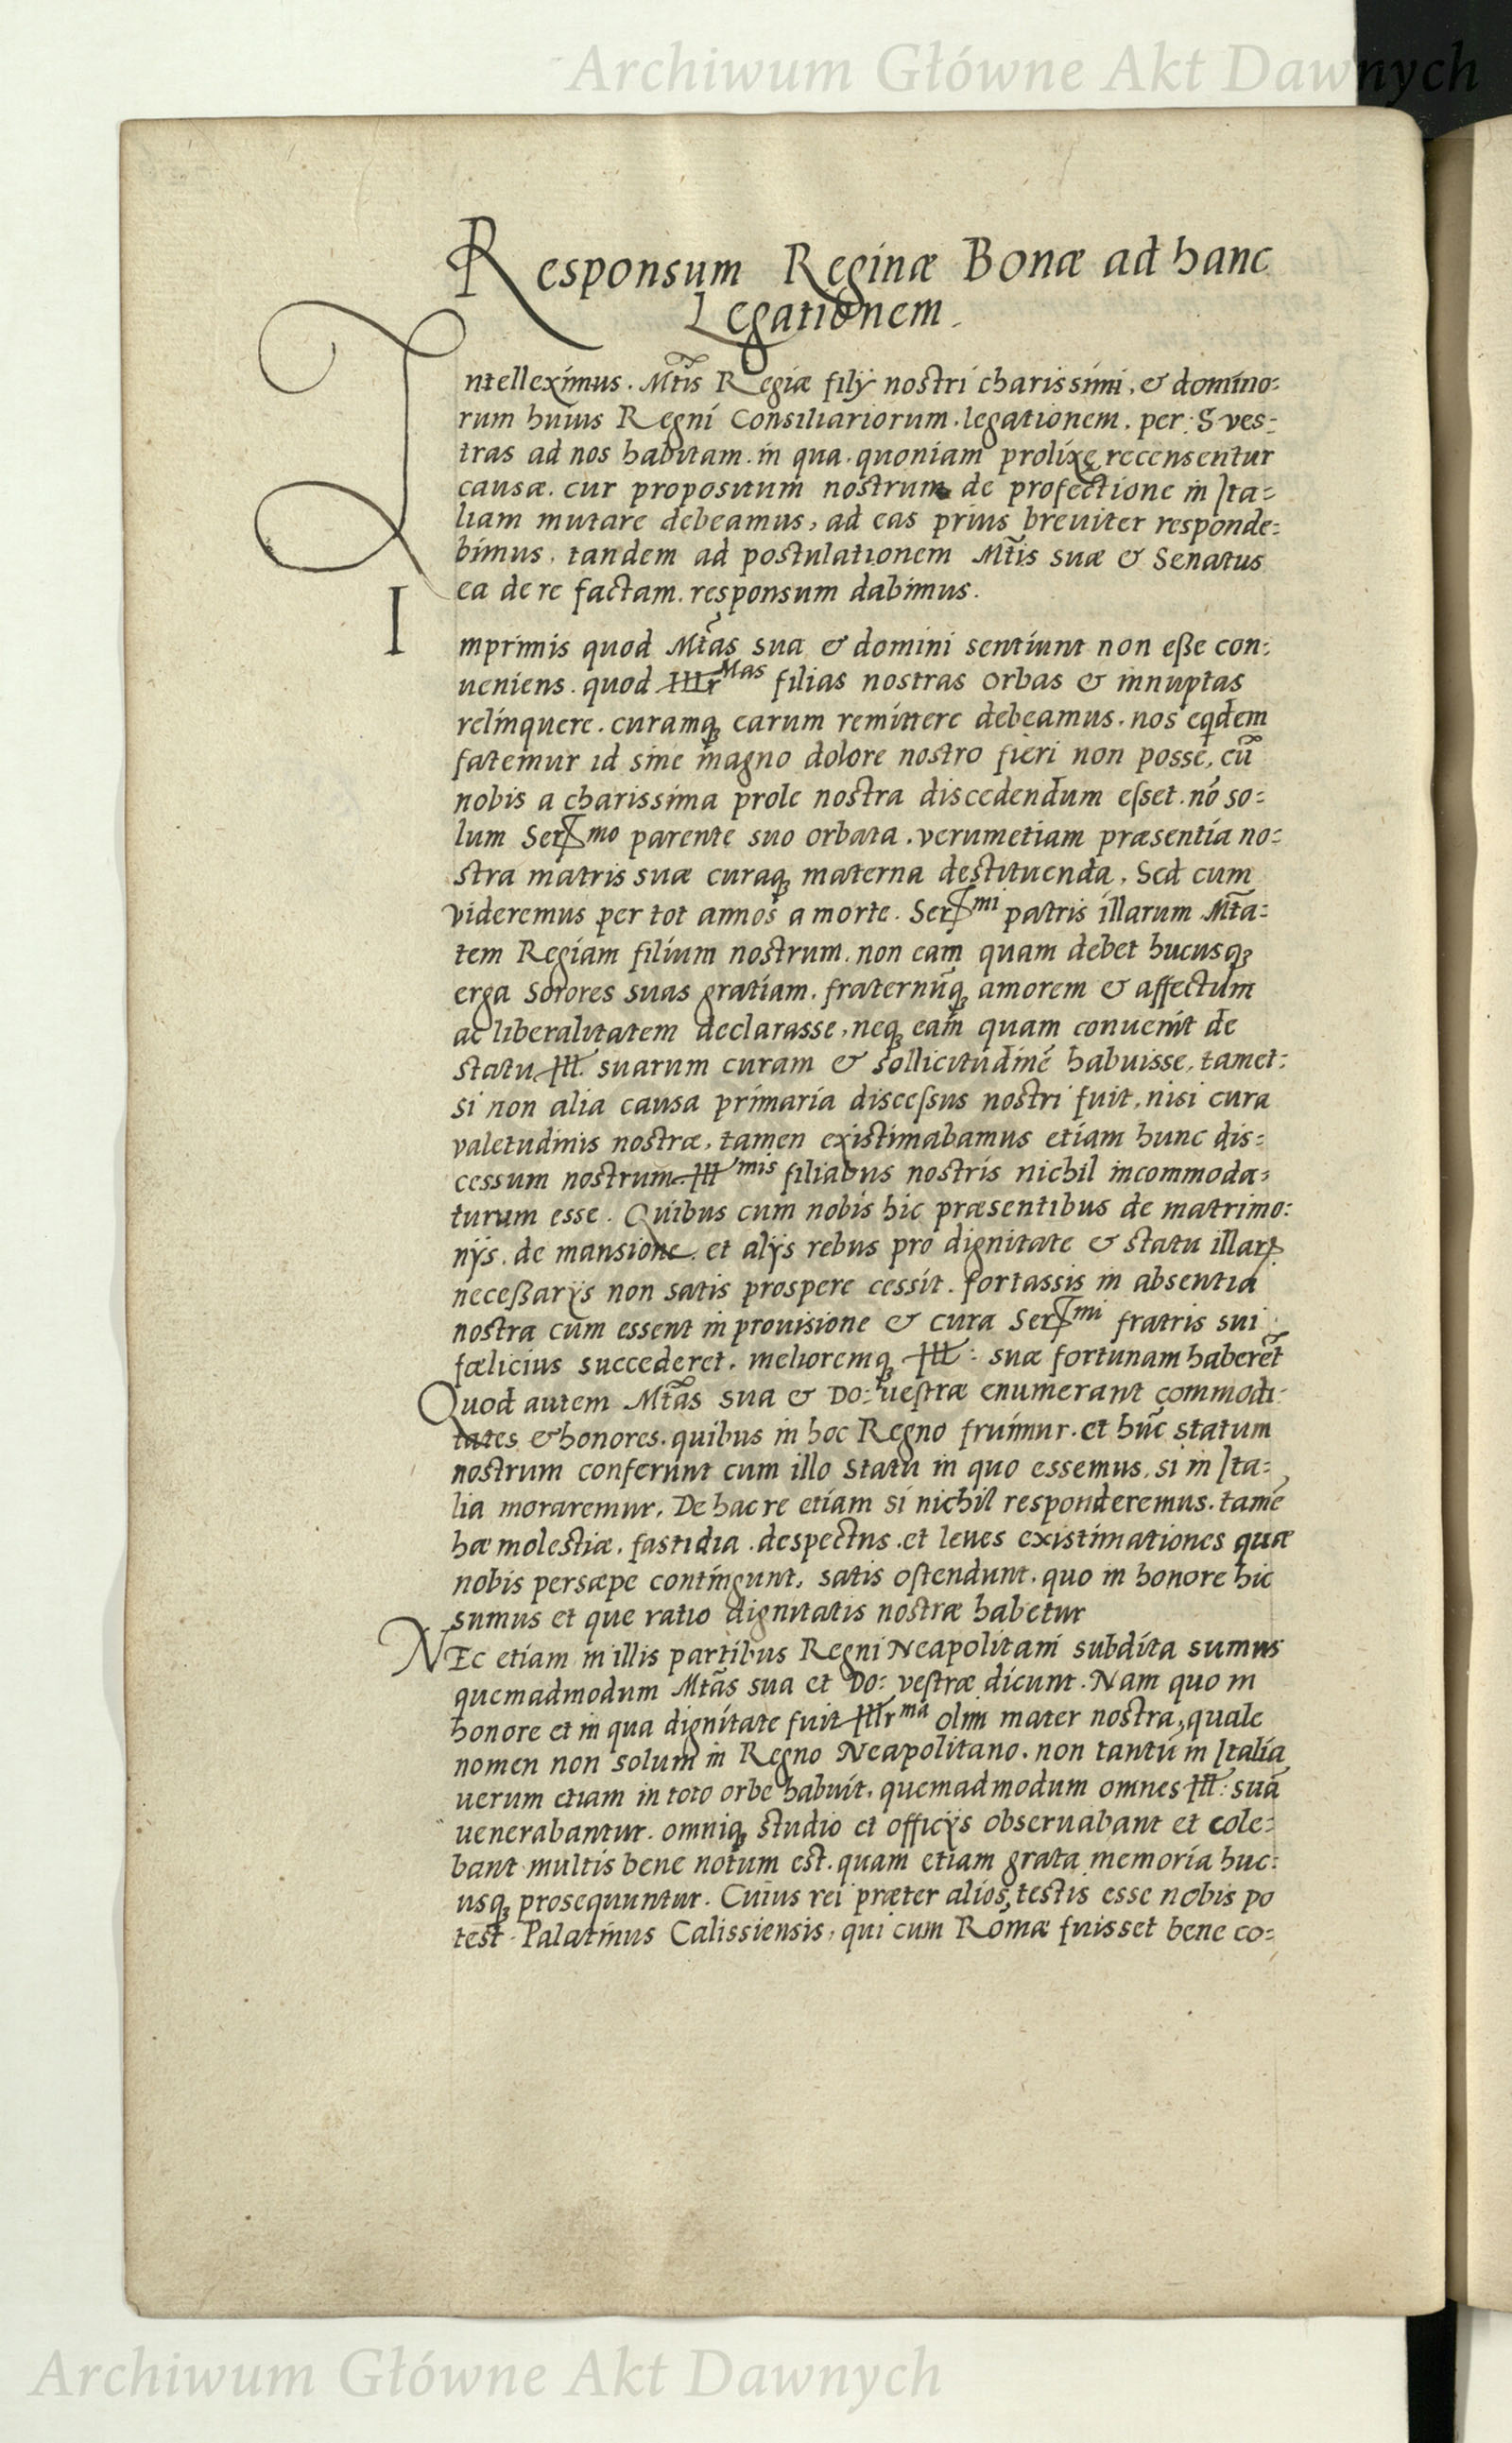 Archiwum Główne Akt Dawnych
Responsum Reginæ Bonæ ad hanc
Legationem.
Intelleximus. Mtis Regiæ filij nostri charissimi, & domino:
rum huius Regni Consiliariorum. legationem. per: S ves:
tras ad nos habitam. in qua. quoniam prolixę recensentur
causæ. cur propositum nostrum de profectione in Ita:
liam mutare debeamus, ad eas prius breuiter responde:
bimus. tandem ad postulationem Mtis suæ & Senatus
ea de re factam. responsum dabimus.
Imprimis quod Mtas sua & domini sentiunt non eße con:
ueniens. quod Illr Mas filias nostras orbas & innuptas
relinquere. curamq; earum remittere debeamus. nos eqdem
fatemur id sine magno dolore nostro fieri non posse, cū
nobis a charissima prole nostra discedendum esset. nō so:
lum Ser mo parente suo orbata. verumetiam præsentia no:
stra matris suæ curaq; materna destituenda. Sed cum
videremus per tot annos a morte. Ser mi patris illarum Mta:
tem Regiam filium nostrum. non eam quam debet hucusq;
erga Sorores suas gratiam. fraternūq; amorem & affectum
ac liberalitatem declarasse, neq; eam quam conuenit de
statu Ill. suarum curam & sollicitudinē habuisse, tamet:
si non alia causa primaria discessus nostri fuit, nisi cura
valetudinis nostræ, tamen existimabamus etiam hunc dis:
cessum nostrum Ill mis filiabus nostris nichil incommoda:
turum esse. Quibus cum nobis hic præsentibus de matrimo:
nijs. de mansione. et alijs rebus pro dignitate & statu illarꝝ
neceßarijs non satis prospere cessit. fortassis in absentia
nostra cum essent in prouisione & cura Ser mi fratris sui
fœlicius succederet. melioremq; Ill: suæ fortunam haberēt
Quod autem Mtas sua & Do: uestræ enumerant commodi:
tates & honores. quibus in hoc Regno fruimur. et hūc statum
nostrum conferunt cum illo Statu in quo essemus, si in Ita:
lia moraremur. De hac re etiam si nichil responderemus. tamē
hæ molestiæ, fastidia. despectus. et leues existimationes quæ
nobis persæpe contingunt, satis ostendunt. quo in honore hic
sumus et que ratio dignitatis nostræ habetur
NEc etiam in illis partibus Regni Neapolitani subdita sumus
quemadmodum Mtas sua et Do: vestræ dicunt. Nam quo in
honore et in qua dignitate fuit Illr ma olim mater nostra, quale
nomen non solum in Regno Neapolitano. non tantū in Italia
uerum etiam in toto orbe habuit. quemadmodum omnes Ill: suā
uenerabantur. omniq; studio et officijs obseruabant et cole:
bant multis bene notum est. quam etiam grata memoria huc:
usq; prosequuntur. Cuius rei præter alios, testis esse nobis po
test. Palatinus Calissiensis, qui cum Romæ fuisset bene co:
Archiwum Główne Akt Dawnych